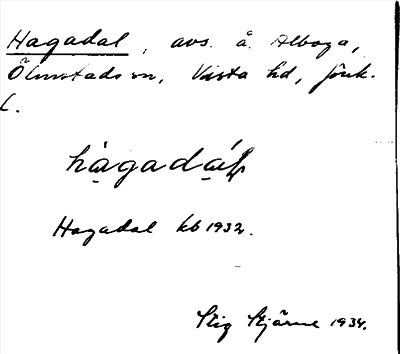 Hagadal, avs. å. Alboga,
Ölmstads sn, Vista hd, Jönk.
L.
hàgadáɫ
Hagadal kb 1932.
Stig Stjärne 1934.